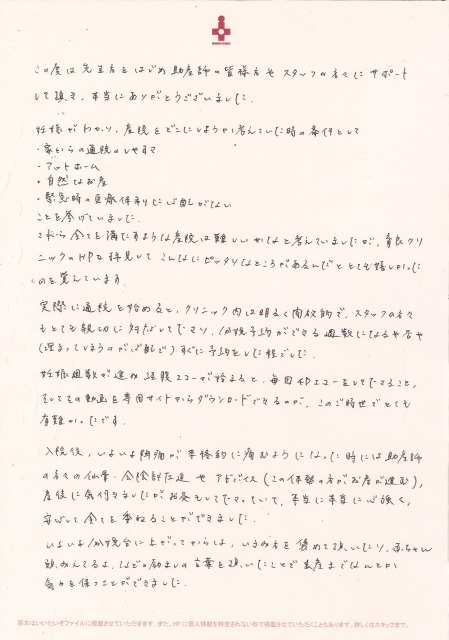 この度は先生方をはじめ助産師の皆様方やスタッフの方々にサポート
して頂き、本当にありがとうございました。
妊娠がわかり、産院をどこにしようか考えていた時の条件として
・家からの通院のしやすさ
・アットホーム
・自然なお産
・緊急時の医療体制に心配がない
ことを挙げていました。
これら全てを満たすような産院は難しいかなと考えていましたが、育良クリ
ニックのHPを拝見して こんなにピッタリなところがあるんだととても嬉しかった
のを覚えています。
実際に通院を始めると、クリニック内は明るく開放的で、スタッフの方々
もとても親切に対応してくださり、分娩予約ができる週数になるや否や
(埋まってしまうのが心配で)すぐに予約をした程でした。
妊娠週数が進み 経腹エコーが始まると、毎回4Dエコーをしてくださること、
そしてその動画を専用サイトからダウンロードできるのが、このご時世でとても
有難かったです。
入院後、いよいよ陣痛が本格的に痛むようになった時には助産師
の方々の仙骨・会陰部圧迫やアドバイス(この体勢の方がお産が進む)、
産後に気付きましたがお灸もしてくださっていて、本当に本当に心強く、
安心して全てを委ねることができました。
いよいよ分娩台に上がってからは、いきみ方を褒めて頂いたり、赤ちゃん
頭みえてるよ、などの励ましの言葉を頂いたことで出産までなんとか
気力を保つことができました。
原本はいいたいぞファイルに掲載させていただきます。また、HPに個人情報を特定されない形で掲載させていただくこともあります。詳しくはスタッフまで。